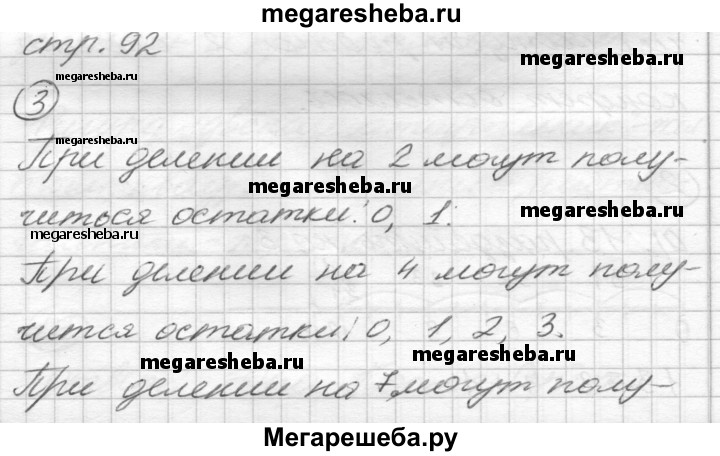 megaresheba.ru
стр. 92
megaresheba.ru megaresheba.ru
3
megaresheba.ru
При делении на 2 могут полу-
megaresheba.ru megaresheba.ru
читься остатки: 0, 1.
megaresheba.ru
При делении на 4 могут полу-
чится остатки: 0, 1, 2, 3.
megaresheba.ru megaresheba.ru
При делении на 7 могут полу-
Мегарешеба.ру